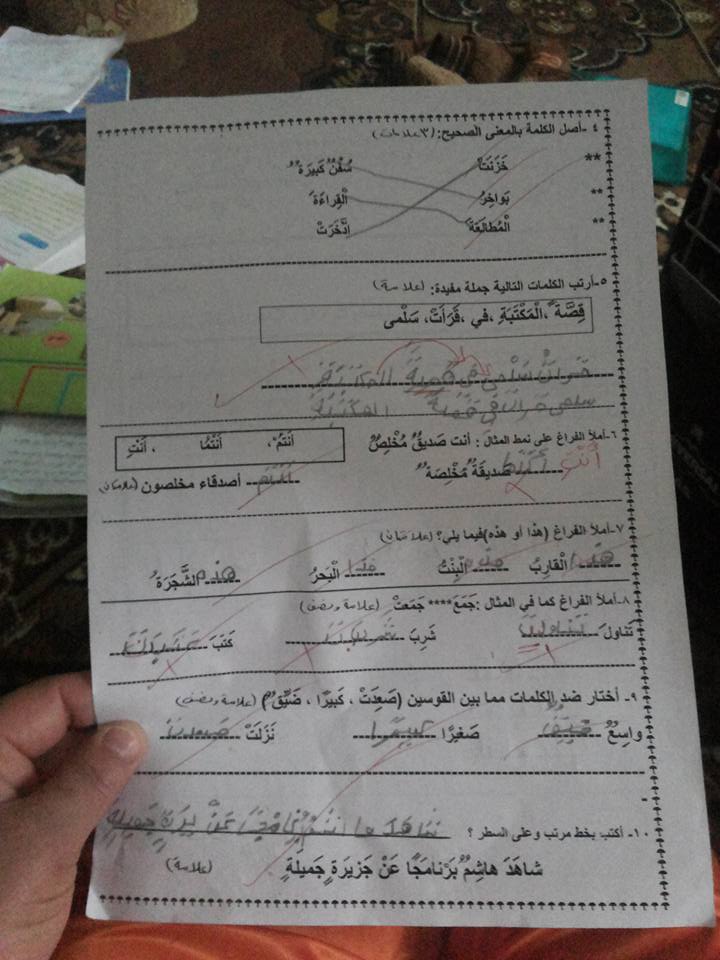 ٤ -أصل الكلمة بالمعنى الصحيح: (٣ علامات)
** خَزَنَتْ سُفُنٌ كَبيرَةٌ
** بَواخِرُ الْقِراءَةَ
** الْمُطالَعَةَ اِدَّخَرَتْ
٥-أرتب الكلمات التالية جملة مفيدة: (علامة)
قِصَّةً ،الْمَكْتَبَةِ ،في ،قَرَأَتْ، سَلْمى
قرأت سلمى في قصة المكتبة
سلمى قرأت في قصة المكتبة
٦-أملأ الفراغ على نمط المثال : أنت صَديقٌ مُخْلِصٌ أَنْتُمْ ، أَنْتُما ، أَنْتِ
أَنْتِ أنتما صَديقَةٌ مُخْلِصَةٌ أنتم أصدقاء مخلصون (علامتان)
٧-أملأ الفراغ (هذا أو هذه)فيما يلي؟ (علامتان)
هذا الْقارِبُ هذه الْبِنْتُ هذا الْبَحرُ هذه الشَّجَرَةُ
٨-أملأ الفراغ كما في المثال :جَمَعَ**** جَمَعَتْ (علامة ونصف)
تَناوَلَ شَرِبَ كَتَبَ
٩- أختار ضد الكلمات مما بين القوسين (صَعِدَتْ ، كَبيرًا ، ضَيِّقٌ) (علامة ونصف)
واسِعٌ ضيق صَغيرًا كبيرا نَزَلَتْ صعدت
١٠- أكتب بخط مرتب وعلى السطر ؟ شاهد هاشم برنامجا عن جزيرة جميلة
شاهَدَ هاشِمٌ بَرْنامَجًا عَنْ جَزيرَةٍ جَميلَةٍ (علامة)